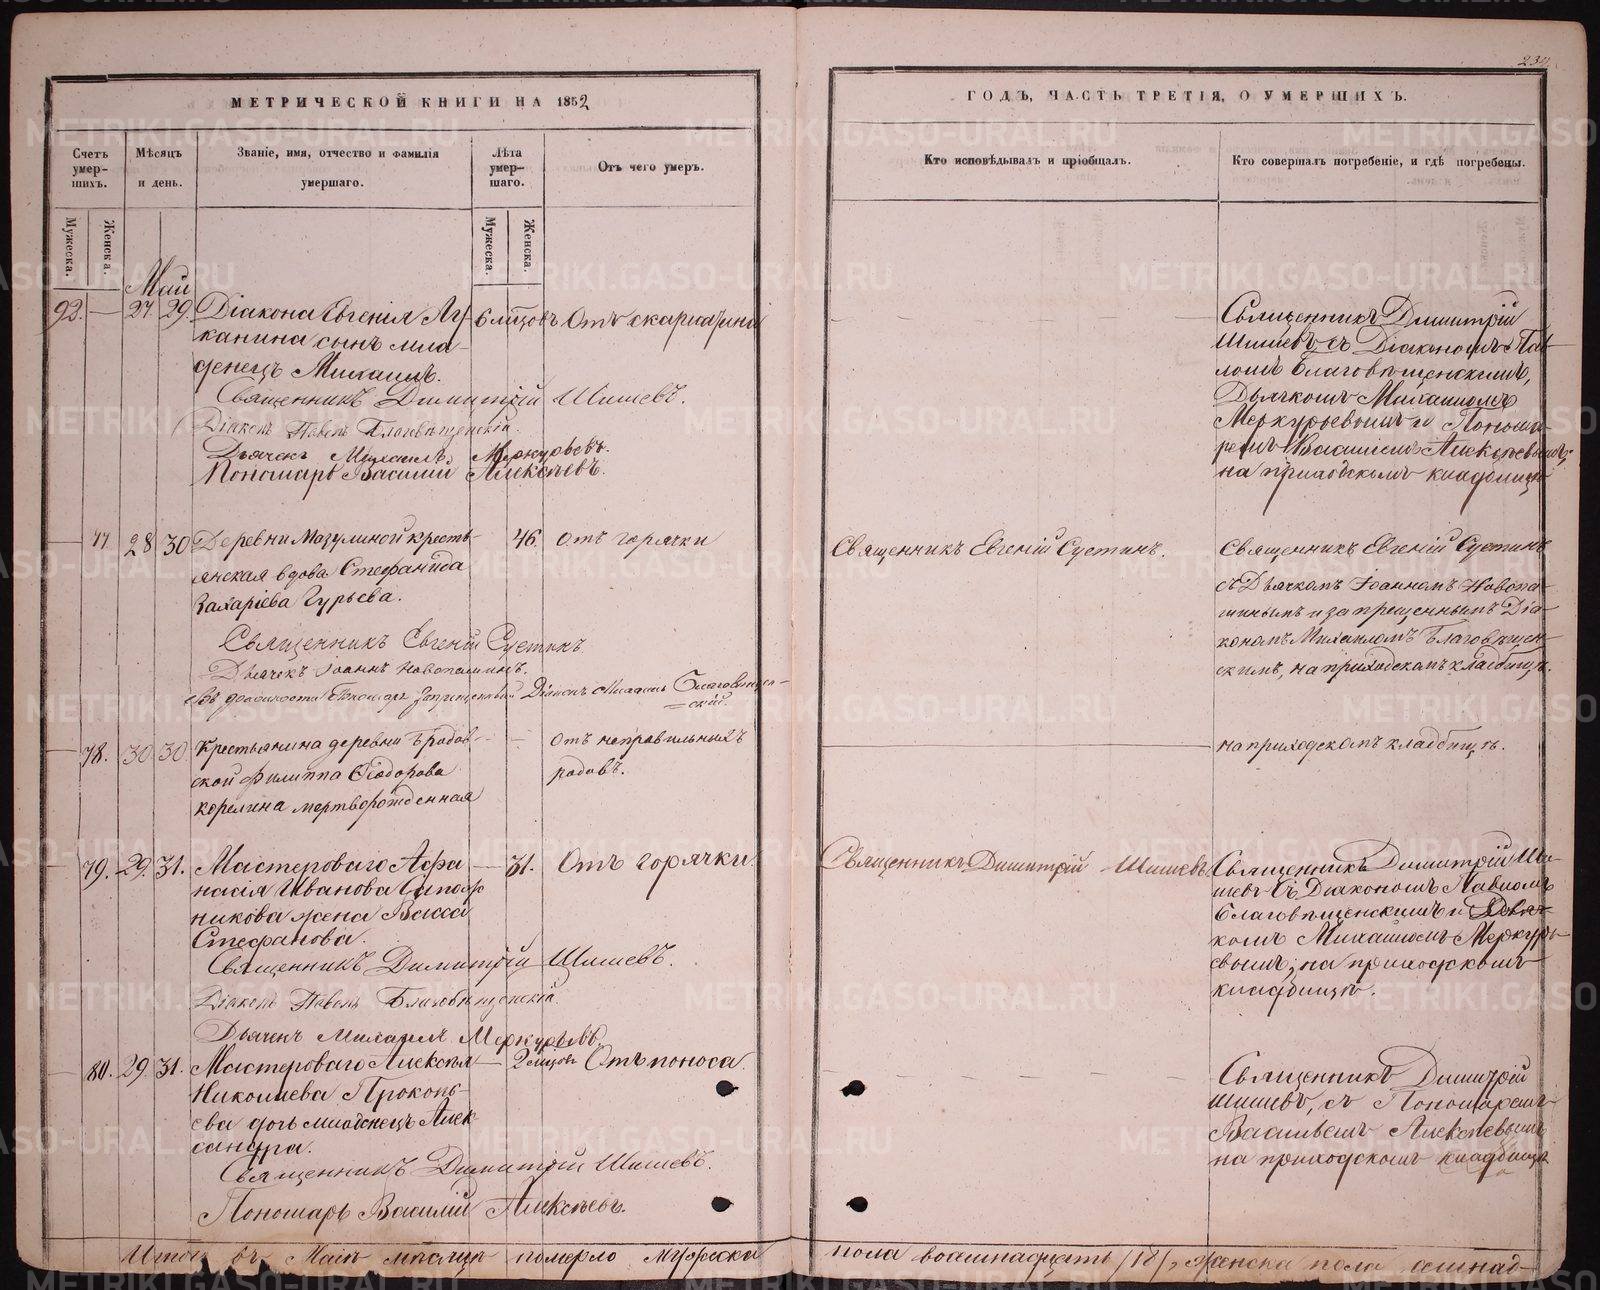 234
МЕТРИЧЕСКОЙ КНИГИ НА 1852
ГОДЪ, ЧАСТЬ ТРЕТІЯ, О УМЕРШИХЪ.
Счетъ умер-шихъ.
Мѣсяцъ и день.
Званіе, имя, отчество и фамилія умершаго.
Лѣта умер-шаго.
Отъ чего умеръ.
Кто исповѣдывалъ и пріобщалъ.
Кто совершалъ погребеніе, и гдѣ погребены.
Мужеска.
Женска.
Мужеска.
Женска.
Май
92. — 27 29. Діакона Евгенія Лу- 6 мѣцовъ Отъ скарлатины
канина сынъ мла-
денецъ Михаилъ.
Священникъ Димитрій Шишевъ.
Діаконъ Павелъ Благовѣщенскій.
Дьячекъ Михаилъ Меркурьевъ.
Пономарь Василій Алексѣевъ.
Священникъ Димитрій
Шишевъ съ Діакономъ Пав-
ломъ Благовѣщенскимъ,
Дьячкомъ Михаиломъ
Меркурьевымъ и Понома-
ремъ Василіемъ Алексѣевымъ;
на приходскомъ кладбищѣ
— 77 28 30 Деревни Мазулиной кресть- 46. отъ горячки
янская вдова Стефанида
Захаріева Гурьева.
Священникъ Евгеній Сустинъ
Дьячекъ Іоаннъ Новопашинъ.
Въ должности Пономаря запрещенный Діаконъ Михаилъ Благовѣщен-
скій.
Священникъ Евгеній Сустинъ.
Священникъ Евгеній Сустинъ
съ Дьячкомъ Іоанномъ Новопа-
шинымъ и запрещеннымъ Діа-
кономъ Михаиломъ Благовѣщен-
скимъ, на приходскомъ кладбищѣ.
— 78. 30 30 Крестьянина деревни Бродов- — — отъ неправильныхъ
ской Филиппа Ѳеодорова родовъ.
Корелина мертворожденная
на приходскомъ кладбищѣ.
79. 29. 31. Мастероваго Афа- — 31. Отъ горячки.
насія Иванова Сапож-
никова жена Васса
Стефанова.
Священникъ Димитрій Шишевъ.
Діаконъ Павелъ Благовѣщенскій
Дьячекъ Михаилъ Меркурьевъ.
Священникъ Димитрій Шишевъ
Священникъ Димитрій Ши-
шевъ съ Діакономъ Павломъ
Благовѣщенскимъ и Дьяч-
комъ Михаиломъ Меркурь-
евымъ; на приходскомъ
кладбищѣ.
— 80. 29. 31. Мастероваго Алексѣя — 2 мѣцовъ Отъ поноса.
Николаева Прокопь-
ева дочь младенецъ Алек-
сандра.
Священникъ Димитрій Шишевъ.
Пономарь Василій Алексѣевъ.
Священникъ Димитрій
Шишевъ, съ Пономаремъ
Васильемъ Алексѣевымъ
на приходскомъ кладбищѣ
Итого въ Маіѣ мѣсяцѣ померло мужеска пола восемнадцать /18/, женска пола семнад-
METRIKI.GASO-URAL.RU